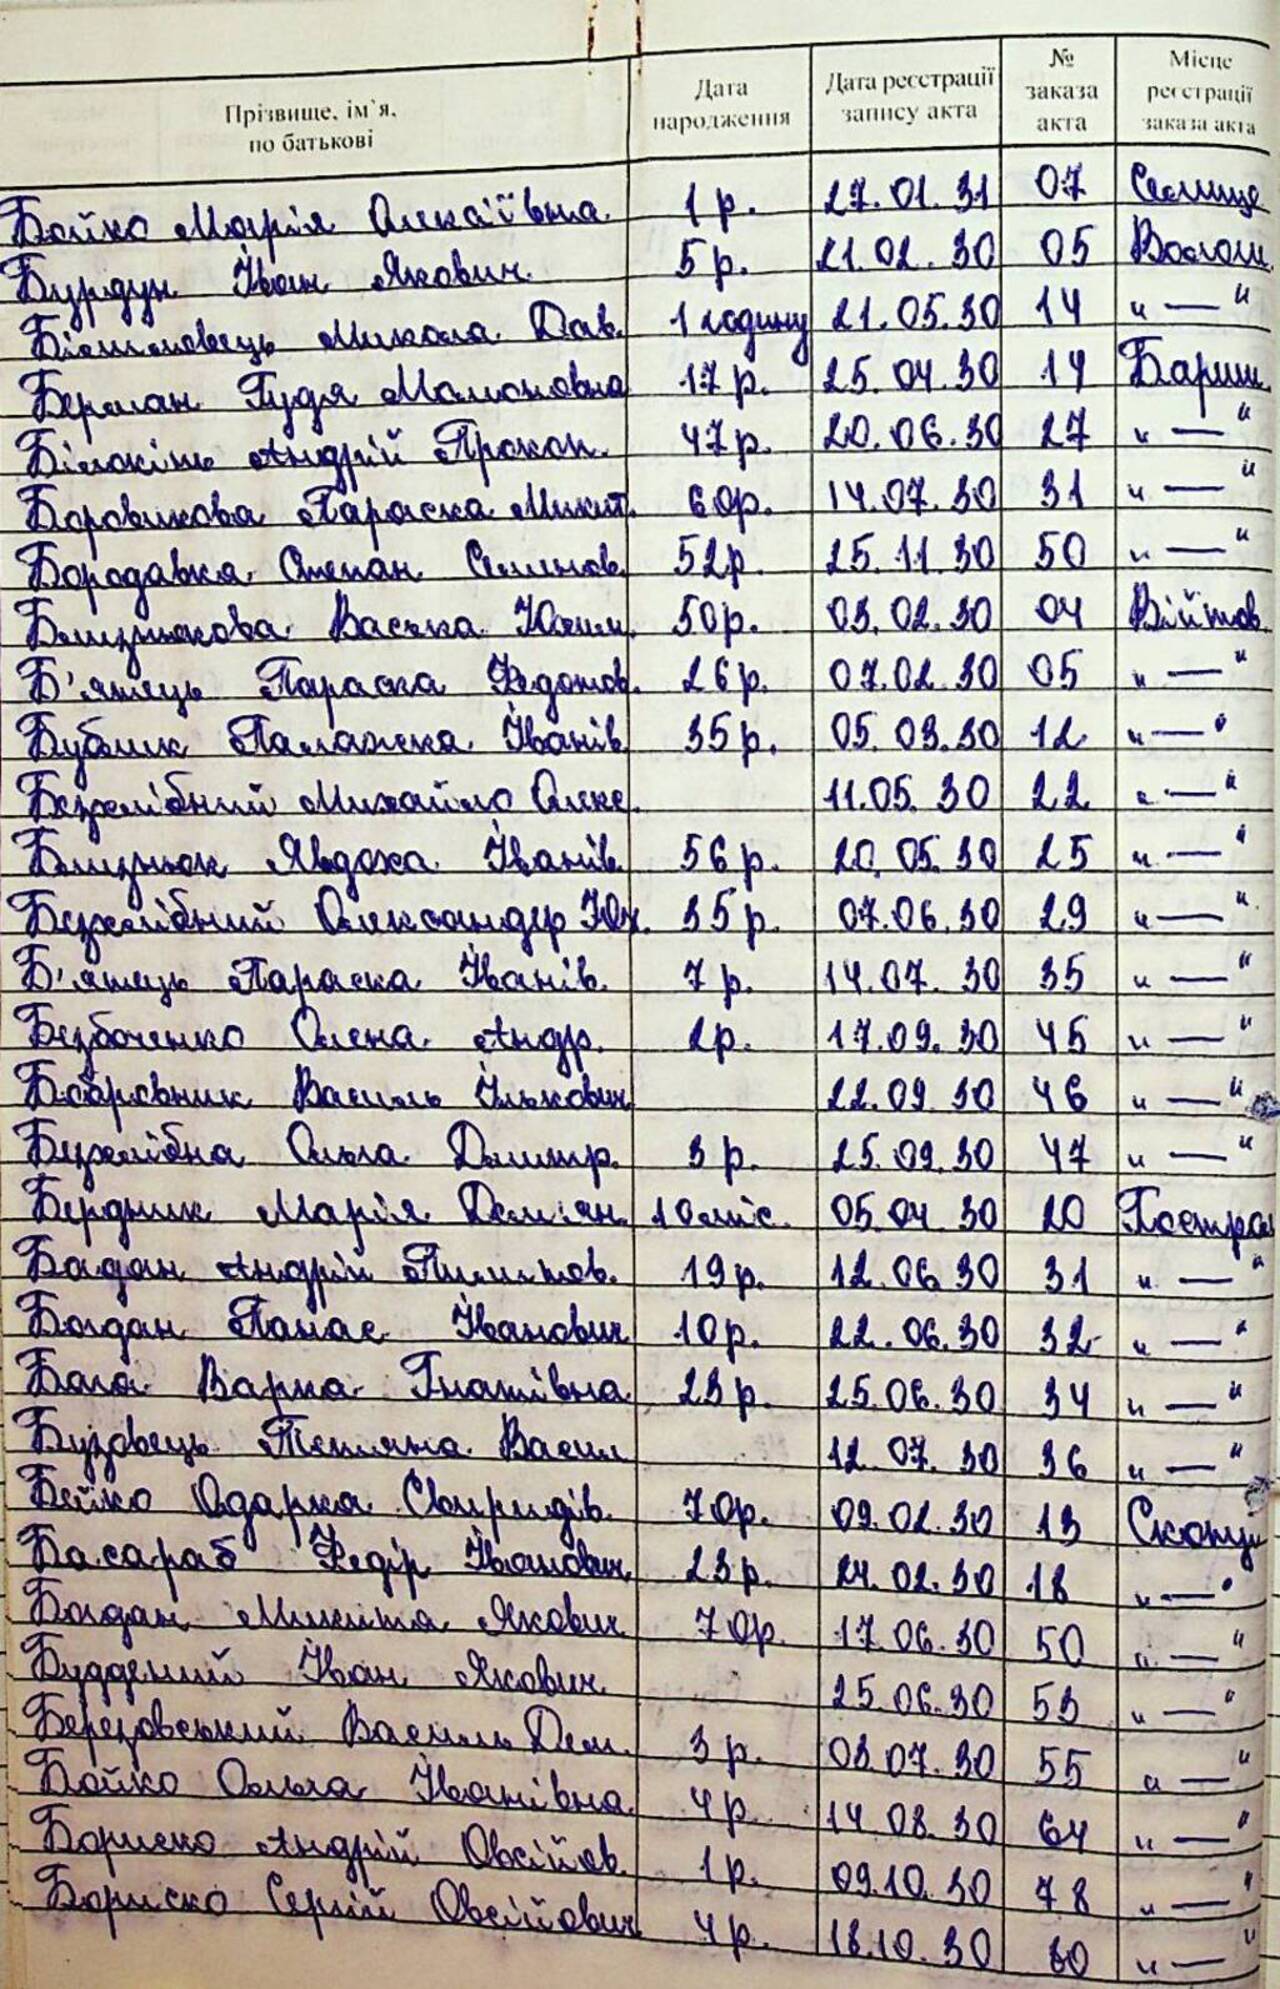 Прізвище, ім`я, по батькові | Дата народження | Дата реєстрації запису акта | № заказа акта | Місце реєстрації заказа акта
Бойко Марія Олексіївна 1 р. 27.01.31 07 Селище
Бурдун Іван Якович 5 р. 21.02.30 05 Волош.
Микола Дав. 1 годину 21.05.30 14 " — "
Берман Гудя 17 р. 25.04.30 19 Бариш.
Білокінь Андрій Прокоп. 47 р. 20.06.30 27 " — "
Боровикова Параска Микит. 60 р. 14.07.30 31 " — "
Бородавка Степан Семенов. 52 р. 25.11.30 50 " — "
Близнюкова Васька Юхим. 50 р. 03.02.30 04 Війтов.
Б'ятець Параска Федотов. 26 р. 07.02.30 05 " — "
Бублик Палажка Іванів. 35 р. 05.03.30 12 " — "
Безхлібний Михайло Олекс. 11.05.30 22 " — "
Близнюк Явдоха Іванів. 56 р. 20.05.30 25 " — "
Безхлібний Олександер Юх. 35 р. 07.06.30 29 " — "
Б'ятець Параска Іванів. 7 р. 14.07.30 35 " — "
Безбоченко Олена Андр. 2 р. 17.09.30 45 " — "
Бобровник Василь Ількович 22.09.30 46 " — "
Безхлібна Ольга Дмитр. 3 р. 25.09.30 47 " — "
Бердник Марія Дем'ян. 10 міс. 05.04.30 20
Богдан Андрій Пилипов. 19 р. 12.06.30 31 " — "
Богдан Панас Іванович 10 р. 22.06.30 32 " — "
Варка Гнатівна 23 р. 25.06.30 34 " — "
Бузовець Тетяна Васил 12.07.30 36 " — "
Бойко Одарка Свиридів. 70 р. 09.02.30 13 Скопц
Басараб Федір Іванович 23 р. 24.02.30 18 " — "
Богдан Микита Якович 70 р. 17.06.30 50 " — "
Іван Якович 25.06.30 53 " — "
Березовський Василь Дем. 3 р. 03.07.30 55 " — "
Бойко Ольга Іванівна 4 р. 14.08.30 64 " — "
Бориско Андрій Овсійов. 1 р. 09.10.30 78 " — "
Бориско Сергій Овсійович 4 р. 18.10.30 80 " — "